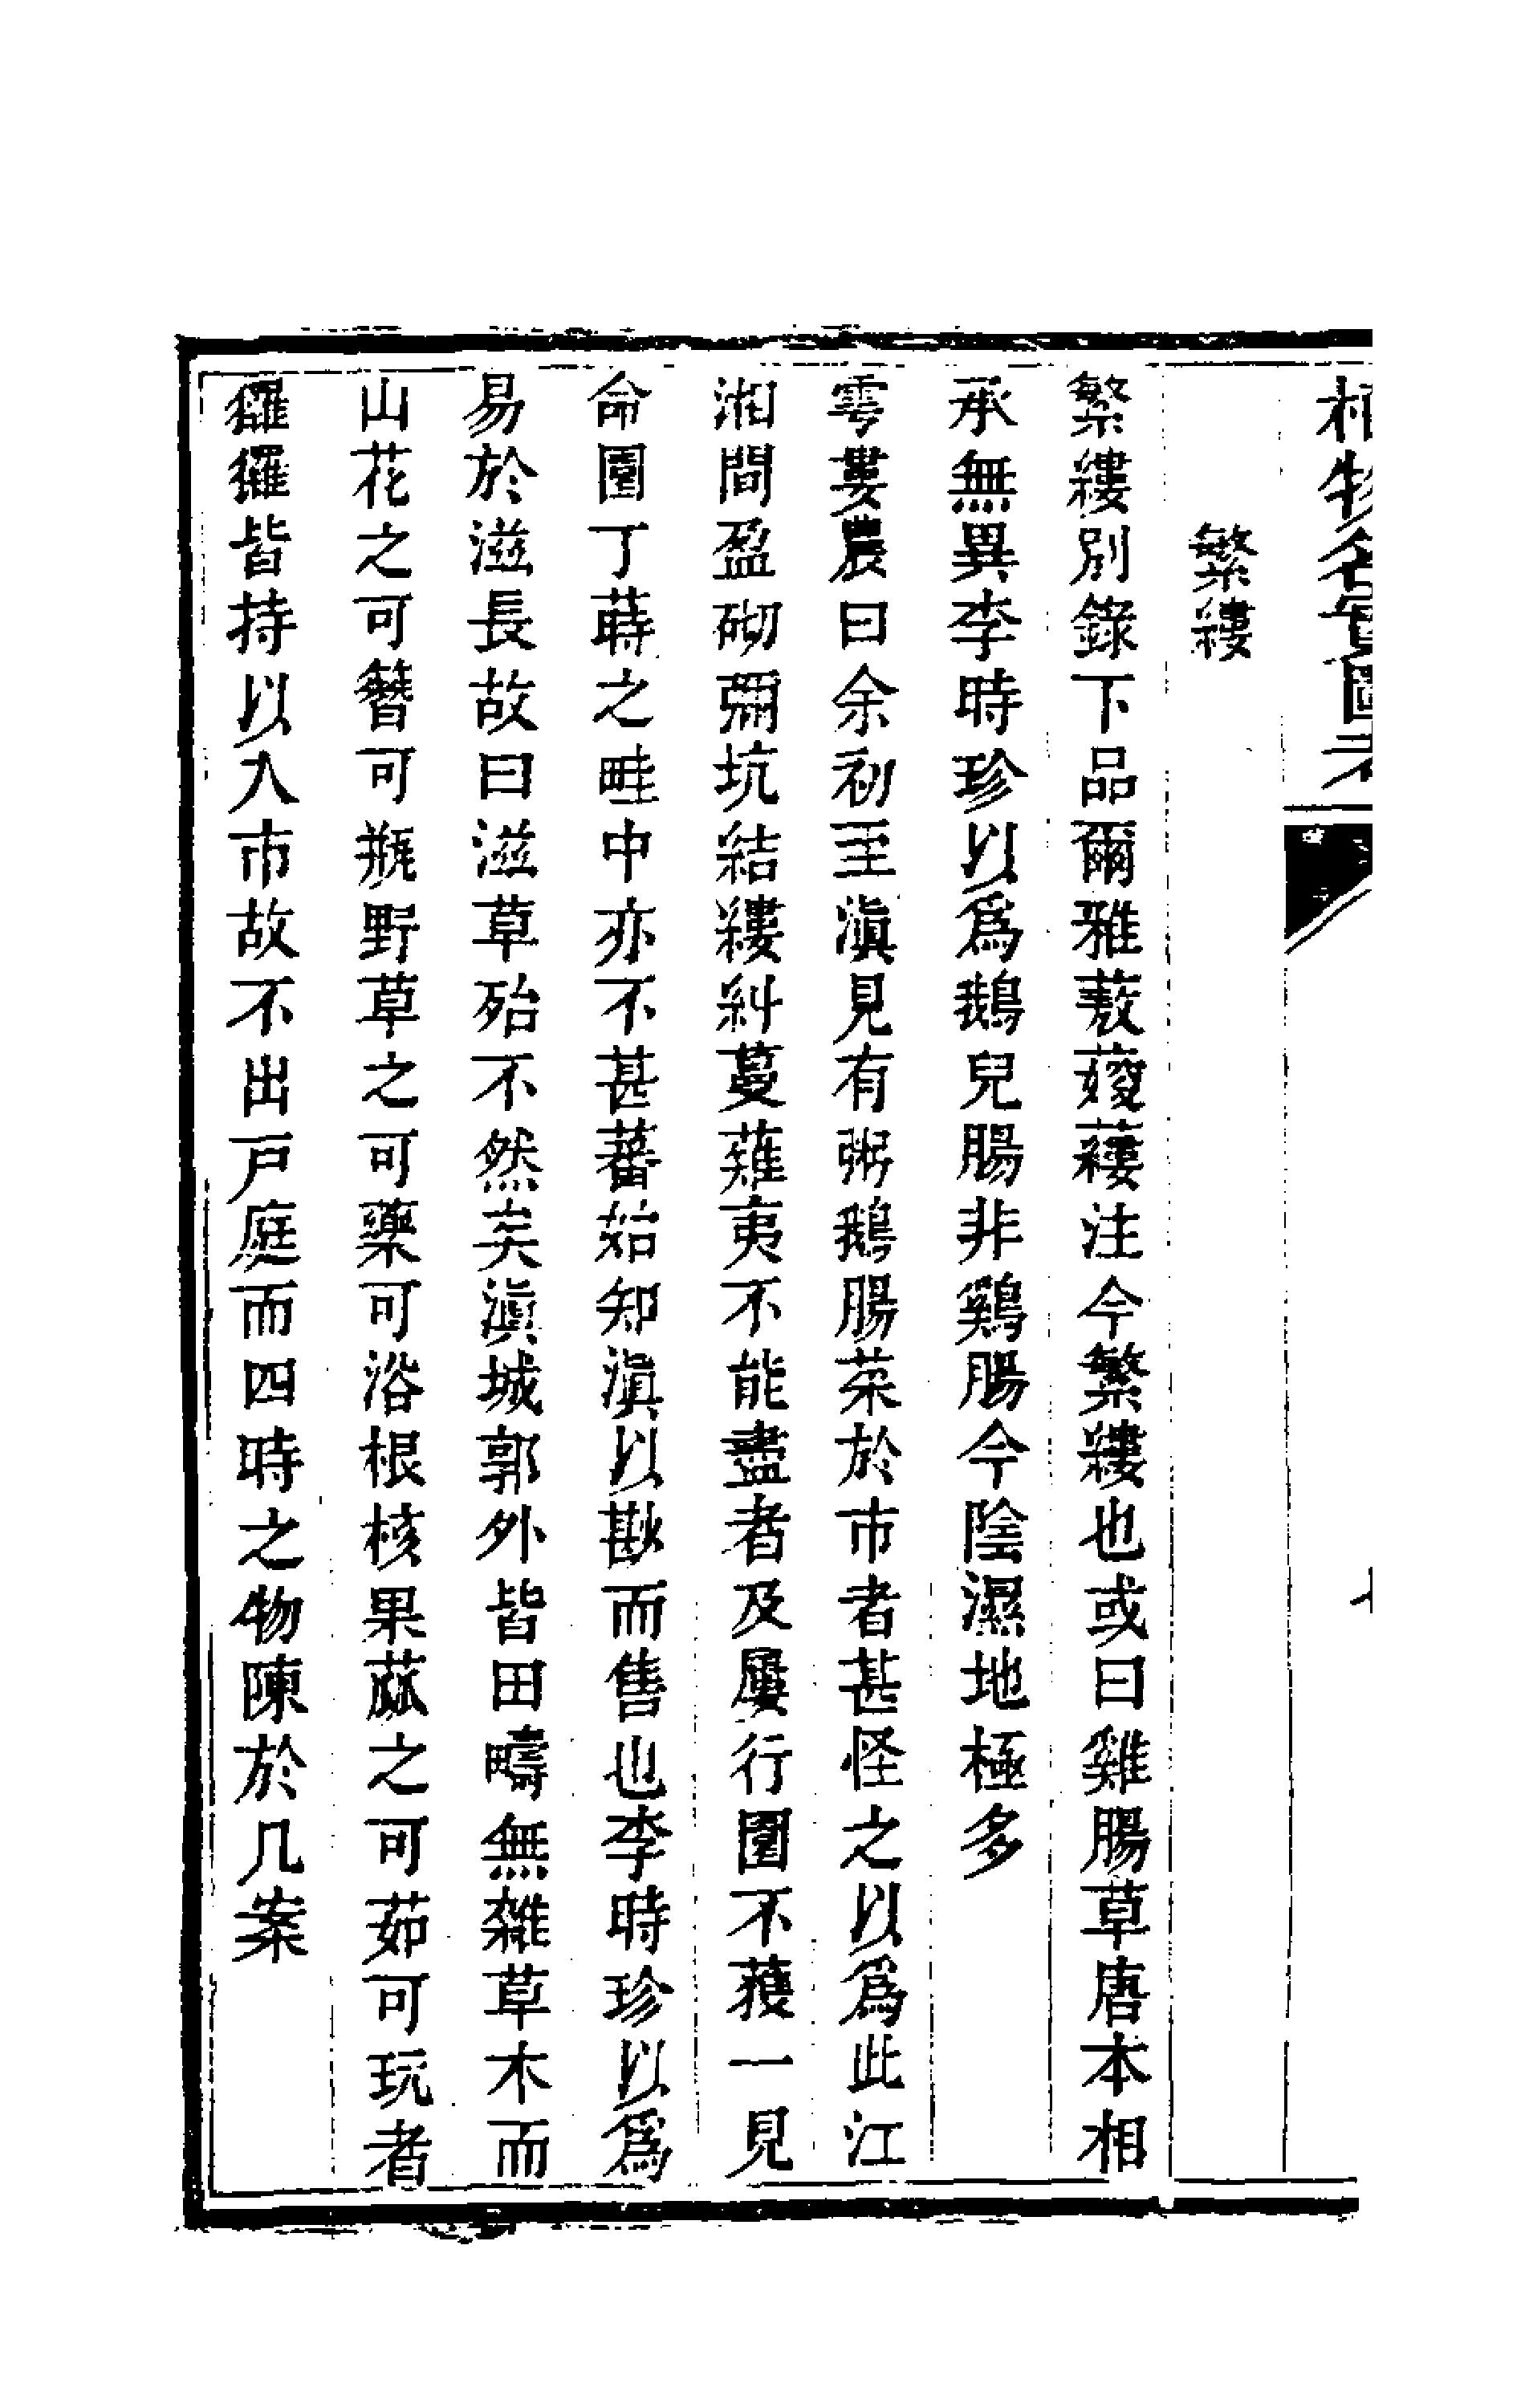 植物名實圖考
繁縷
繁縷別錄下品爾雅蔜䕅蔞注今繁縷也或曰雞腸草唐本相
承無異李時珍以為鵝兒腸非鷄腸今陰濕地極多
雩婁農曰余初至滇見有粥鵝腸菜於市者甚怪之以為此江
湘間盈砌彌坑結縷糾蔓薙夷不能盡者及屢行圃不蒦一見
命園丁蒔之畦中亦不甚蕃始知滇以尠而售也李時珍以為
易於滋長故曰滋草殆不然矣滇城郭外皆田疇無雜草木而
山花之可簪可瓶野草之可藥可浴根核果蓏之可茹可玩者
玀玀皆持以入市故不出戸庭而四時之物陳於几案